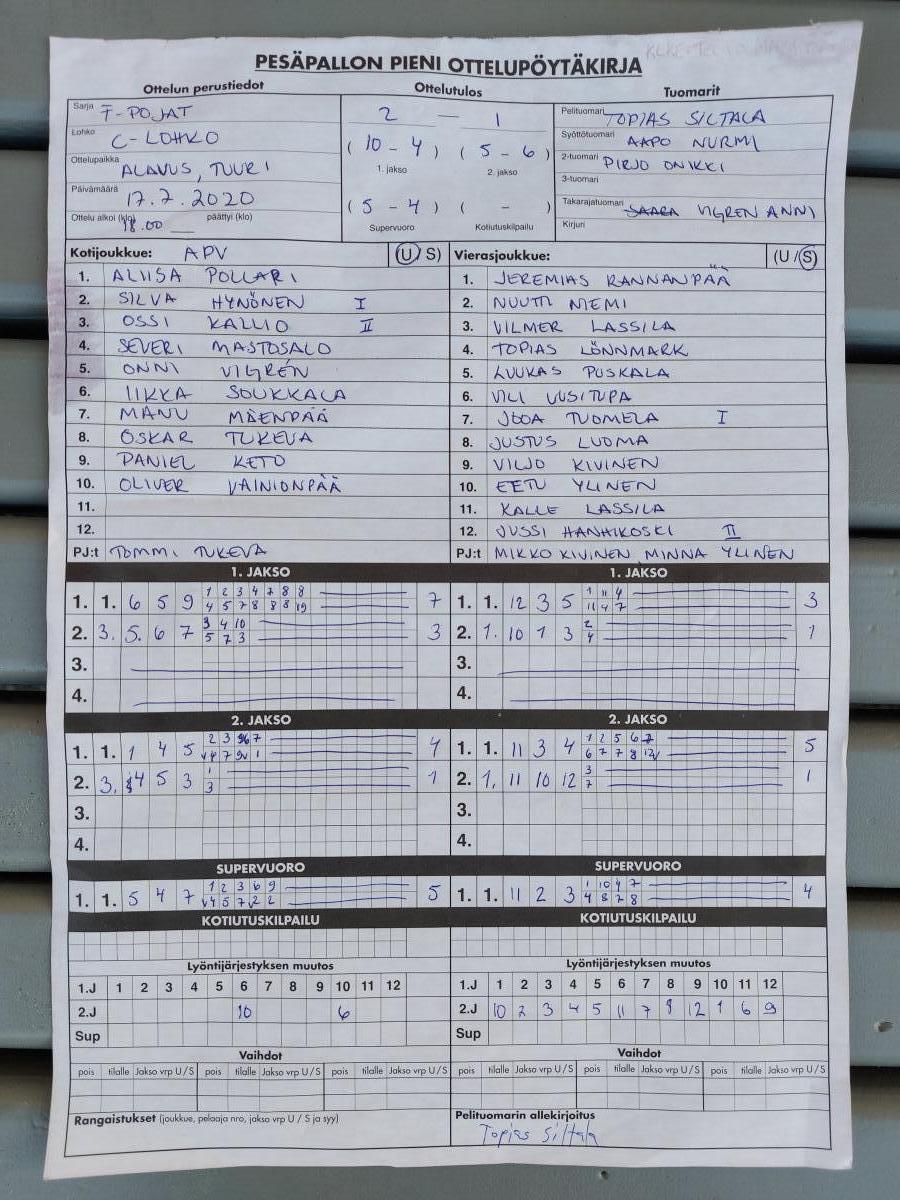 PESÄPALLON PIENI OTTELUPÖYTÄKIRJA
Ottelun perustiedot
Sarja F-POJAT
Lohko C-LOHKO
Ottelupaikka ALAVUS, TUURI
Päivämäärä 17.7.2020
Ottelu alkoi (klo) 18.00 päättyi (klo)
Ottelutulos
2 — 1
(10 - 4) (5 - 6)
1. jakso 2. jakso
(5 - 4) ( - )
Supervuoro Kotiutuskilpailu
Tuomarit
Pelituomari TOPIAS SILTALA
Syöttötuomari AAPO NURMI
2-tuomari PIRJO ONIKKI
3-tuomari
Takarajatuomari VIGREN ANNI
Kirjuri
Kotijoukkue: APV (U/S)
1. ALIISA POLLARI
2. SILVA HYNÖNEN I
3. OSSI KALLIO II
4. SEVERI MASTOSALO
5. ONNI VIGRÉN
6. IIKKA SOUKKALA
7. MANU MÄENPÄÄ
8. OSKAR TUKEVA
9. DANIEL KETO
10. OLIVER VAINIONPÄÄ
11.
12.
PJ:t TOMMI TUKEVA
Vierasjoukkue: (U/S)
1. JEREMIAS RANNANPÄÄ
2. NUUTTI NIEMI
3. VILMER LASSILA
4. TOPIAS LÖNNMARK
5. LUUKAS PUSKALA
6. VILI UUSITUPA
7. JOOA TUOMELA I
8. JUSTUS LUOMA
9. VILJO KIVINEN
10. EETU YLINEN
11. KALLE LASSILA
12. JUSSI HANHIKOSKI II
PJ:t MIKKO KIVINEN MINNA YLINEN
1. JAKSO
1. 1. 6 5 9 1 2 3 4 7 8 8 7
4 5 7 8 8 8 10
2. 3. 5. 6 7 3 4 10 3
5 7 3
3.
4.
1. JAKSO
1. 1. 12 3 5 1 11 4 3
11 4 7
2. 1. 10 1 3 2 1
4
3.
4.
2. JAKSO
1. 1. 1 4 5 2 3 7 4
2. 3. 4 5 3 1 1
3
3.
4.
2. JAKSO
1. 1. 11 3 4 1 2 5 6 7 5
6 7 7 8 12
2. 1, 11 10 12 3 1
7
3.
4.
SUPERVUORO
1. 1. 5 4 7 1 2 3 6 9 5
4 5 7 2 2
SUPERVUORO
1. 1. 11 2 3 1 10 4 7 4
4 8 7 8
KOTIUTUSKILPAILU
KOTIUTUSKILPAILU
Lyöntijärjestyksen muutos
1.J 1 2 3 4 5 6 7 8 9 10 11 12
2.J 10 6
Sup
Lyöntijärjestyksen muutos
1.J 1 2 3 4 5 6 7 8 9 10 11 12
2.J 10 2 3 4 5 11 7 8 12 1 6 9
Sup
Vaihdot
pois tilalle Jakso vrp U/S pois tilalle Jakso vrp U/S pois tilalle Jakso vrp U/S
Vaihdot
pois tilalle Jakso vrp U/S pois tilalle Jakso vrp U/S pois tilalle Jakso vrp U/S
Rangaistukset (joukkue, pelaaja nro, jakso vrp U / S ja syy)
Pelituomarin allekirjoitus
Topias Siltala